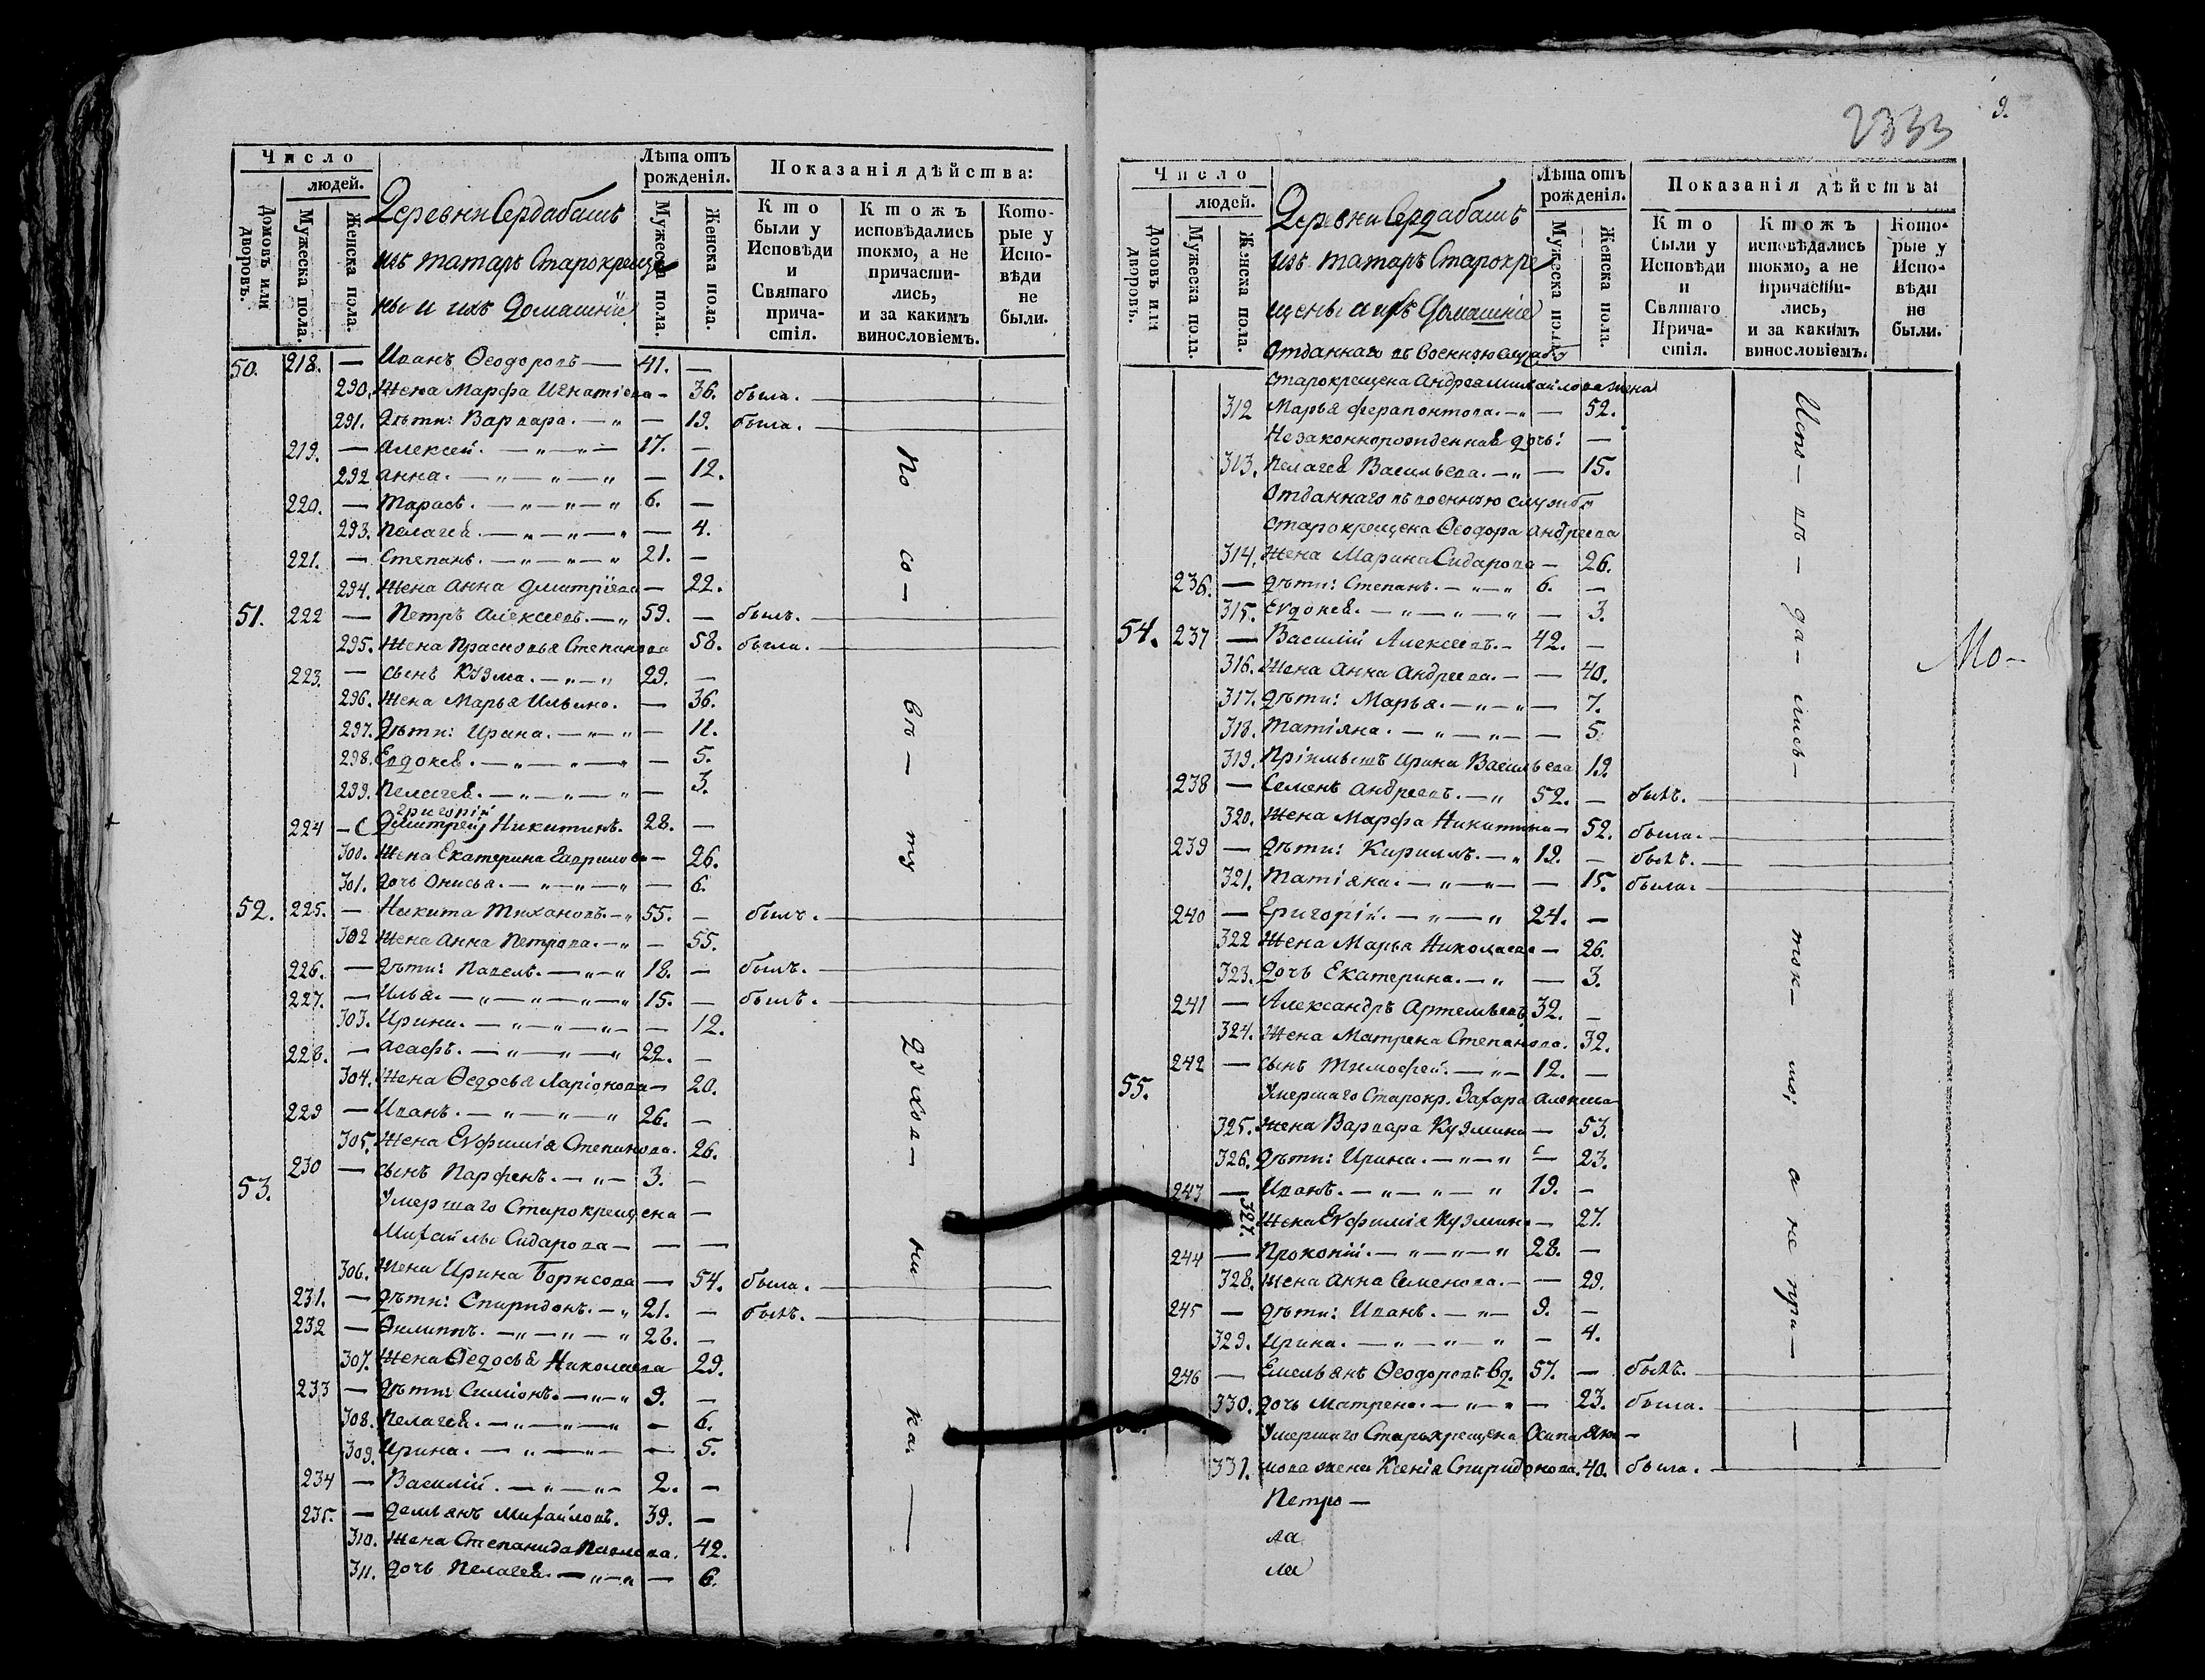 Число
людей.
Домовъ или дворовъ.
Мужеска пола.
Женска пола.
Деревни Сердабашъ
изъ татаръ Старокреще
ны и ихъ Домашніе
Лѣта отъ рожденія.
Мужеска пола.
Женска пола.
Показанія дѣйства:
Кто были у Исповѣди и Святаго причастія.
Ктожъ исповѣдались токмо, а не причастились, и за какимъ винословіемъ.
Которые у Исповѣди не были.
50. 218. — Иванъ Ѳеодоровъ — 41. —
290. Жена Марфа Игнатіева — 36. была.
291. Дѣти: Варвара. — „ — 19. была.
219. — Алексей. — „ — „ — 17. —
292 Анна. — „ — „ — „ — 12.
220. — Тарасъ. — „ — „ — „ 6. —
293. Пелагея. — „ — „ — „ — 4.
221. — Степанъ. — „ — „ — „ 21. —
294. Жена Анна Дмитріева — 22.
51. 222 — Петръ Алексеевъ. — „ 59. — былъ.
295. Жена Прасковья Степанова 58. была.
223. — сынъ Кузма. — „ — „ 29. —
296. Жена Марья Ильина. — 36.
297. Дѣти: Ирина. — „ — „ — 11.
298. Евдокея. — „ — „ — „ — 5.
299. Пелагея. — „ — „ — „ — 3.
Григорій
224 — Дмитрей Никитинъ. 28. —
300. Жена Екатерина Гаврилова — 26.
301. дочь Онисья. — „ — „ — „ — 6.
52. 225. — Никита Тихановъ. — „ 55. — былъ.
302 Жена Анна Петрова. — „ — 55.
226. — дѣти: Павелъ. — „ — „ 18. — былъ.
227. — Илья. — „ — „ — „ — „ 15. — былъ.
303. Ирина. — „ — „ — „ — — 12.
228. — Асафъ. — „ — „ — „ 22. —
304. Жена Ѳедосья Ларіонова — 20.
229 — Иванъ. — „ — „ — „ 26. —
305. Жена Евфимія Степанова. 26.
230 — сынъ Парфенъ. — „ — 3. —
53. Умершаго Старокрещена —
Михайлы Сидарова — — —
306. жена Ирина Борисова — 54. была.
231. — дѣти: Спиридонъ. — „ 21. — былъ.
232 — Филиппъ. — „ — „ — „ 28. —
307. Жена Ѳедосья Николаева 29.
233 — дѣти: Симіонъ. — „ — „ 9. —
308. Пелагея. — „ — „ — „ — 6.
309. Ирина. — „ — „ — — 5.
234 — Василій. — „ — „ — 2. —
235. — Демьянъ Михайловъ. 39. —
310. Жена Степанида Павлова. 42.
311. дочь Пелагея. — „ — „ — 6.
По
со —
вѣ —
ту
духов —
ни
ка. —
2333
9.
Число
людей.
Домовъ или дворовъ.
Мужеска пола.
Женска пола.
Деревни Сердабашъ
изъ татаръ Старокре
щены и ихъ Домашніе
Лѣта отъ рожденія.
Мужеска пола.
Женска пола.
Показанія дѣйства:
Кто были у Исповѣди и Святаго Причастія.
Ктожъ исповѣдались токмо, а не причастились, и за какимъ винословіемъ.
Которые у Исповѣди не были.
Отданнаго въ военную службу
старокрещена Андрея Михайлова жена
312 Марья Ферапонтова. — „ — 52.
Незаконнорожденная дочь: —
313. Пелагея Васильева. — „ — 15.
Отданнаго въ военную службу
старокрещена Ѳеодора Андреева
314. Жена Марина Сидарова — 26.
236. — дѣти: Степанъ. — „ — „ 6. —
315. Евдокея. — „ — „ — „ — 3.
54. 237 — Василій Алексеевъ. — 42. —
316. Жена Анна Андреева. — — 40.
317. дѣти: Марья. — „ — „ — 7.
318. Татіяна. — „ — „ — — 5.
319. Пріимышъ Ирина Васильева 19.
238 — Семенъ Андреевъ. — „ 52. — былъ.
320. Жена Марфа Никитина — 52. была.
239 — дѣти: Кириллъ. — „ 19. — былъ.
321. Татіяна. — „ — „ — — 15. была.
240 — Григорій. — „ — „ 24. —
322 Жена Марья Николаева — 26.
323. Дочь Екатерина. — „ — 3.
241 — Александръ Артемьевъ 32. —
324. Жена Матрена Степанова. 32.
242 — сынъ Тимофей. — „ — 12. —
55. Умершаго Старокр. Захара Алексеева
325. Жена Варвара Кузмина — 53.
326. дѣти: Ирина. — „ — „ — 23.
243 — Иванъ. — „ — „ — „ 19. —
327. Жена Евфимія Кузмина — 27.
244 — Прокопій. — „ — „ — „ 28. —
328. Жена Анна Семенова. — — 29.
245 — дѣти: Иванъ. — „ — 9. —
329. Ирина. — „ — „ — „ — 4.
246 — Емельянъ Ѳеодоровъ вд. 57. — былъ.
330. дочь Матрена. — „ — „ — 23. была.
Умершаго Старокрещена Осипа Яко —
331. влева жена Ксенія Спиридонова. 40. была.
Петро —
ва
Испо —
вѣ —
да —
лись —
ток —
мо;
а
не
при —
Мо —